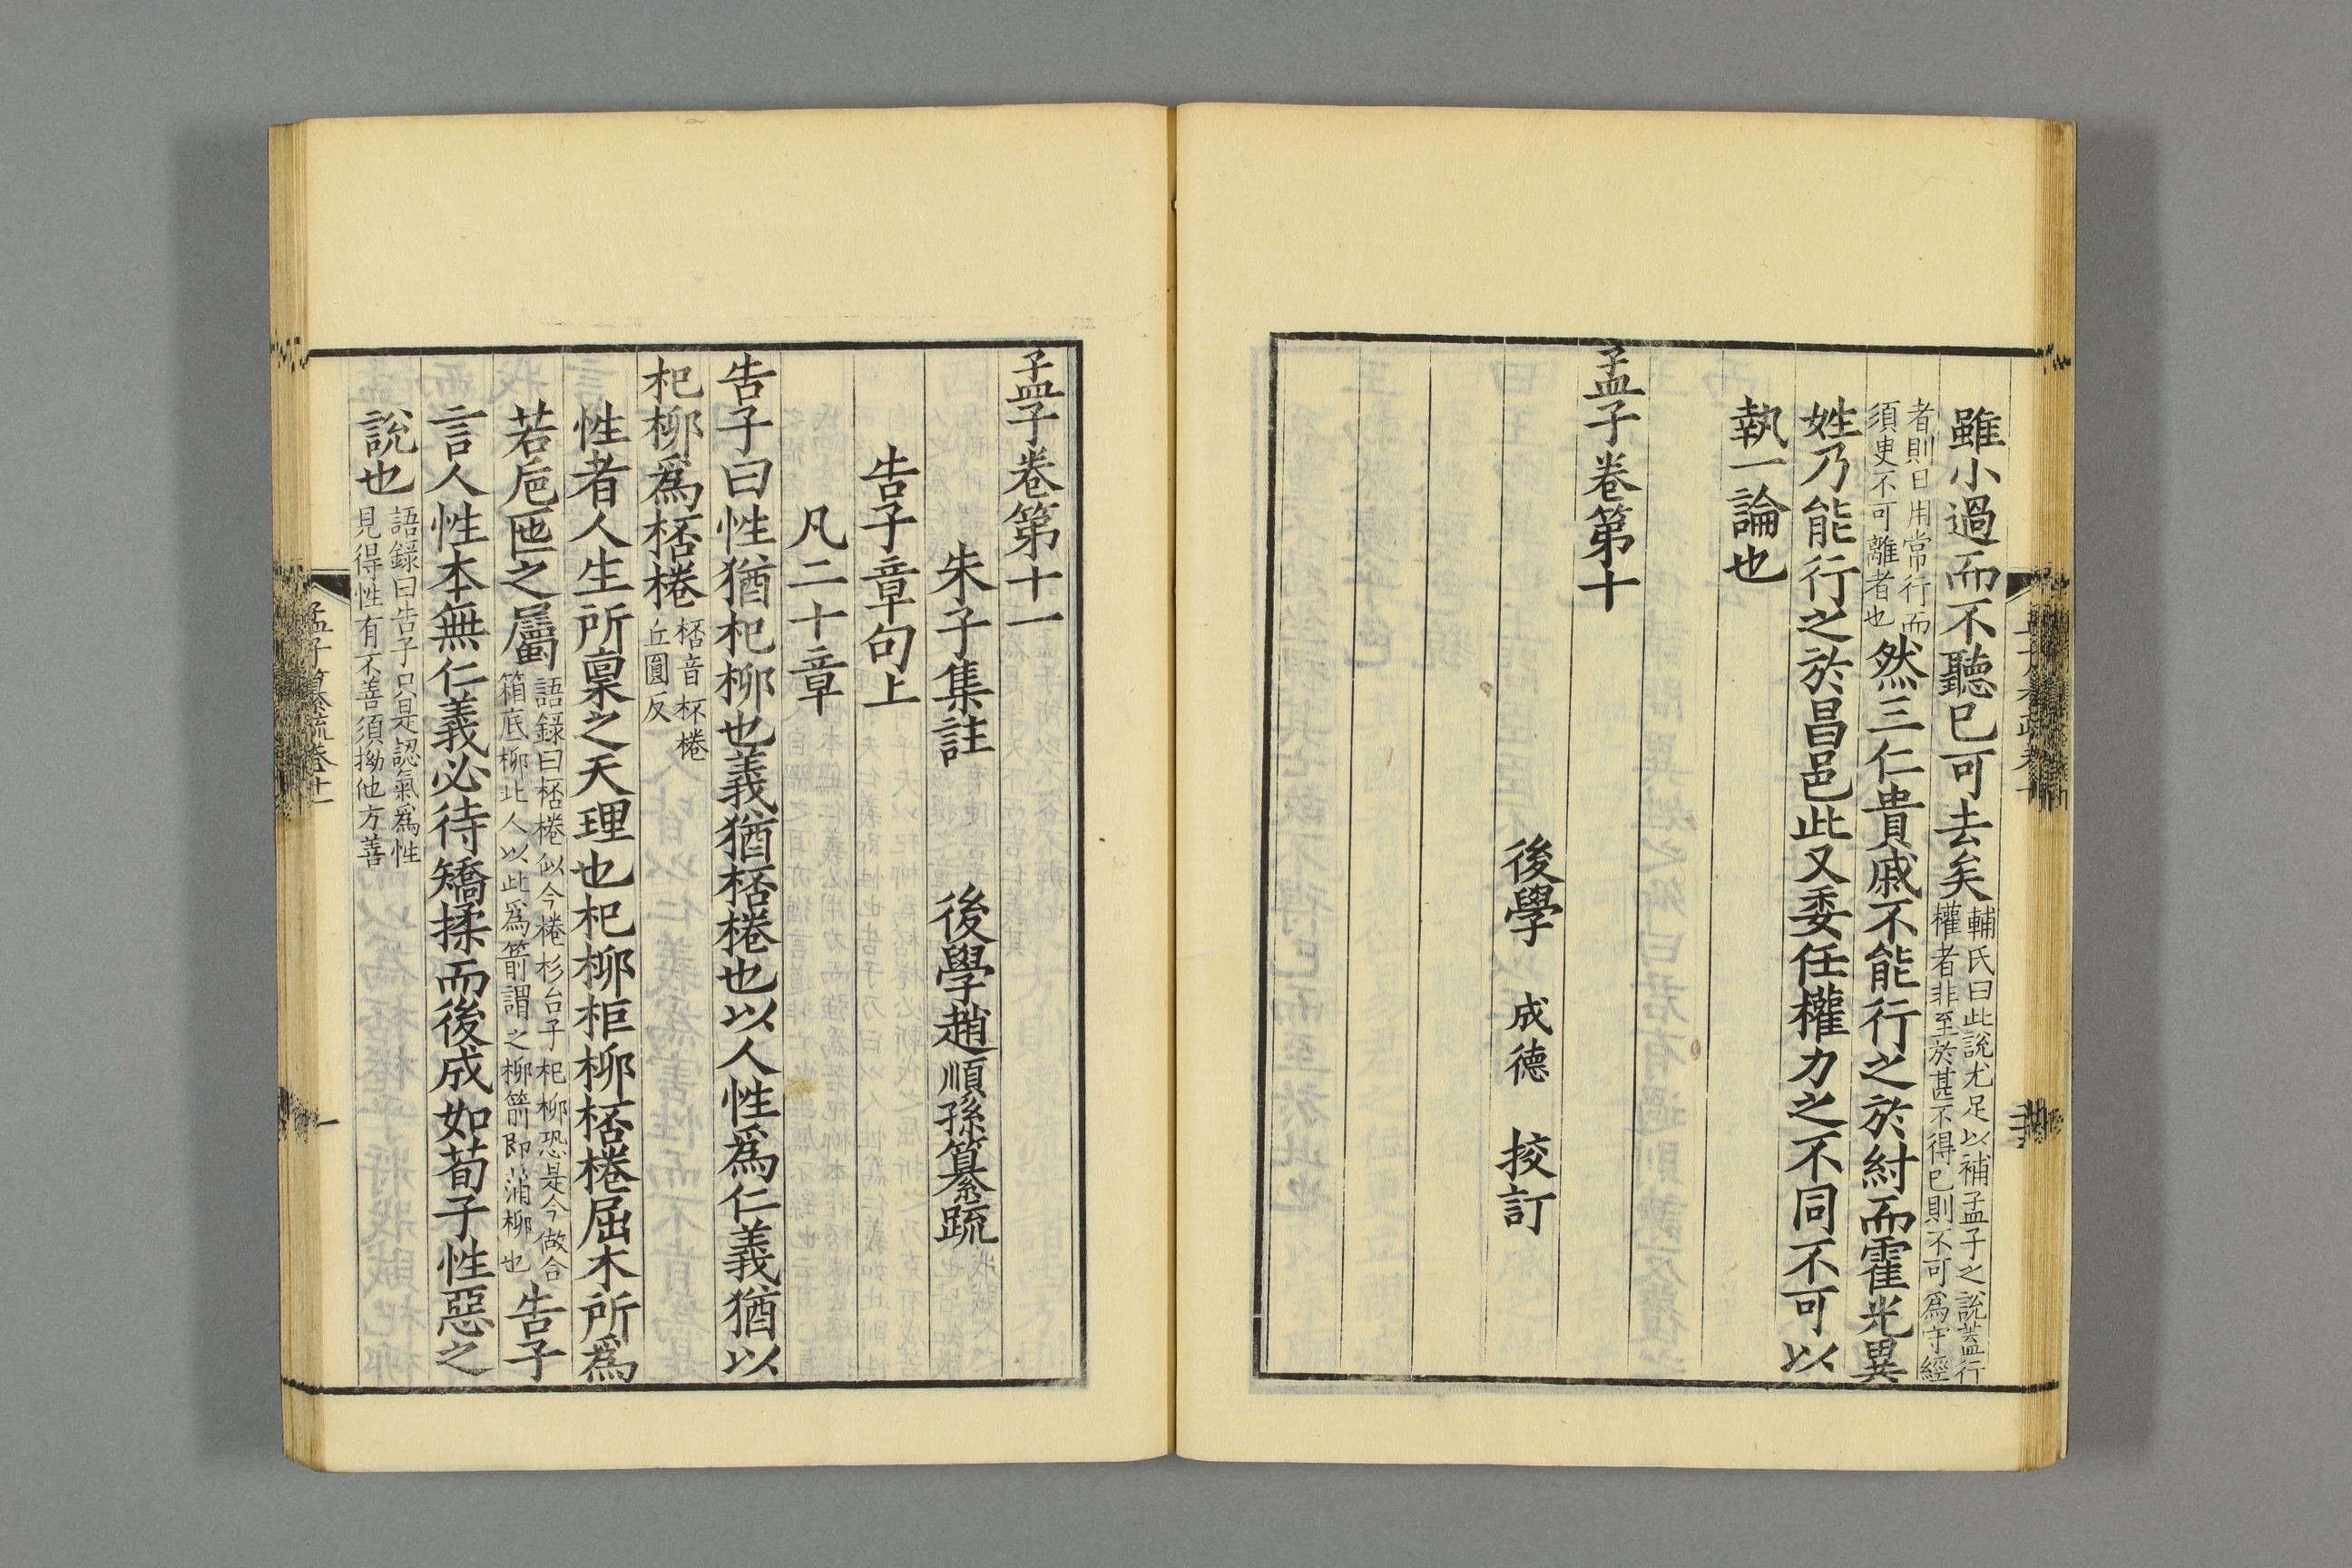 雖小過而不聽已可去矣輔氏曰此說尤足以補孟子之說蓋行權者非至於甚不得已則不可爲守經
者則日用常行而須臾不可離者也然三仁貴戚不能行之於紂而霍光異
姓乃能行之於昌邑此又委任權力之不同不可以
執一論也
孟子卷第十
後學 成德 挍訂
孟子卷第十一
朱子集註 後學趙順孫纂疏
告子章句上
凡二十章
告子曰性猶杞柳也義猶桮棬也以人性爲仁義猶以
杞柳爲桮棬桮音杯棬丘圓反
性者人生所稟之天理也杞柳柜柳桮棬屈木所爲
若巵匜之屬語錄曰桮棬似今棬杉台子杞柳恐是今做合箱底柳北人以此爲箭謂之柳箭即蒲柳也告子
言人性本無仁義必待矯揉而後成如荀子性惡之
說也語錄曰告子只是認氣爲性見得性有不善須拗他方善
孟子纂疏卷十一
一